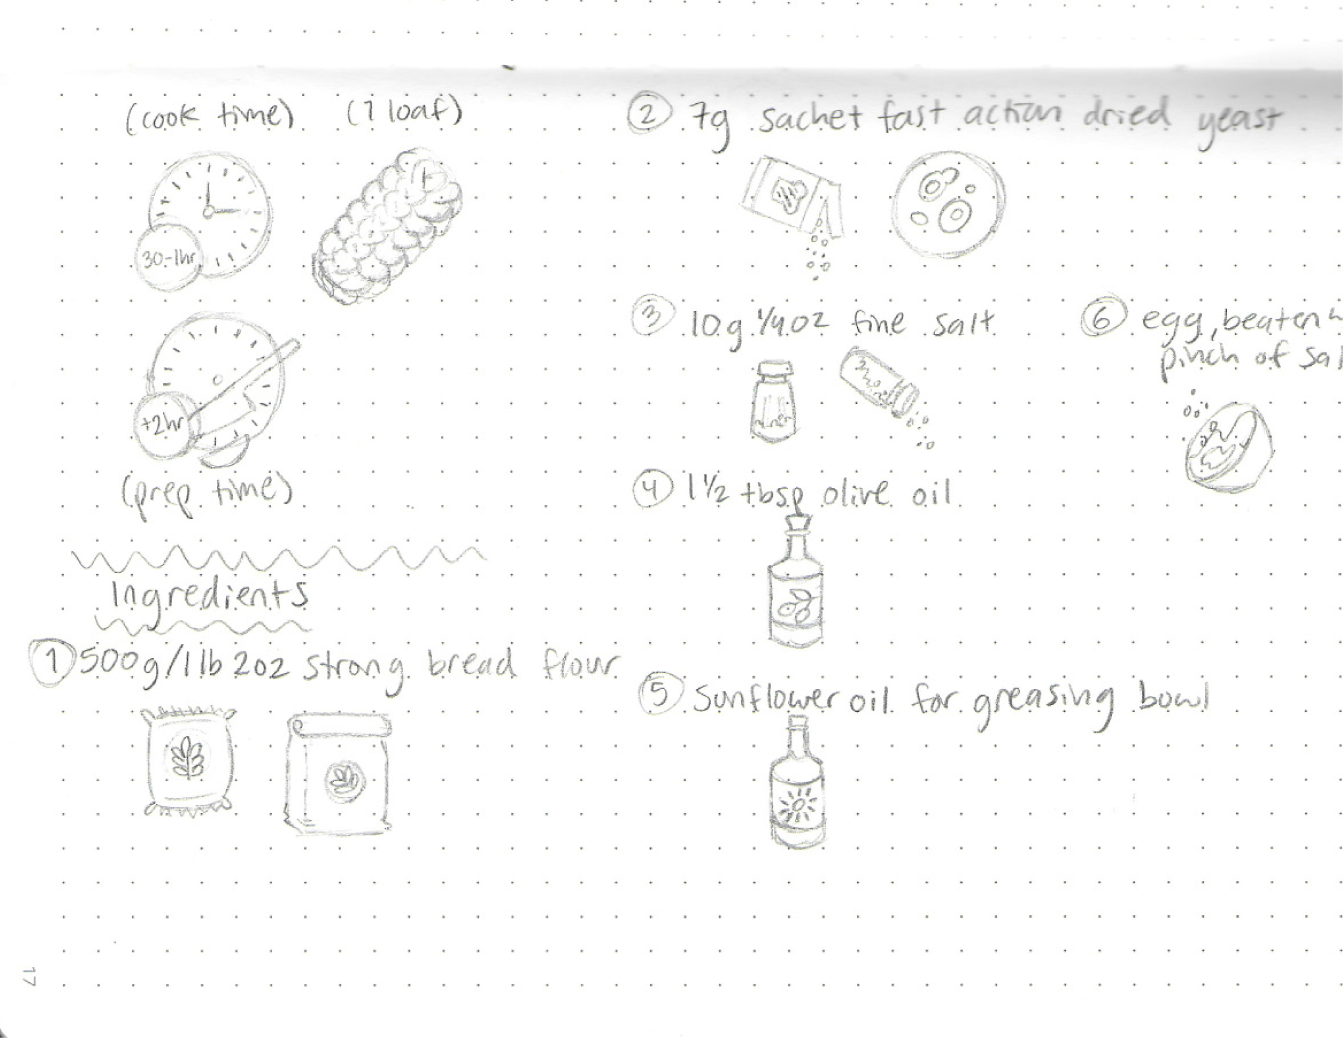 (cook time) (1 loaf)
30-1hr
+2hr
(prep time)
Ingredients
1 500g/1lb 2oz strong bread flour
2 7g sachet fast action dried yeast
3 10g 1/4oz fine salt
4 1 1/2 tbsp olive oil
5 Sunflower oil for greasing bowl
6 egg, beaten
pinch of sal
17